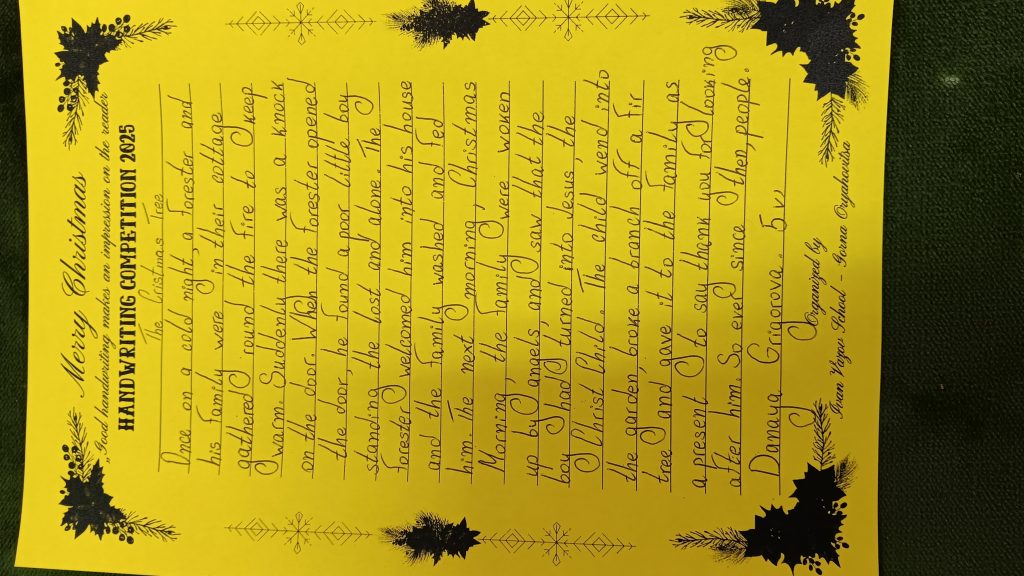 Merry Christmas
"Good handwriting makes an impression on the reader"
HANDWRITING COMPETITION 2025
The Cristmas Tree
Once on a cold night, a forester and
his family were in their cottage
gatheired round the fire to keep
warm. Suddenly there was a knock
on the door. When the forester opened
the door, he found a poor little boy
standing the lost and alone. The
forester welcomed him into his house
and the family washed and fed
him. The next morning, Christmas
Morning, the family were woken
up by angels and saw that the
boy had turned into Jesus, the
Christ Child. The child wend into
the garden, broke a branch off a fir
tree and gave it to the family as
a present to say thank you for looking
after him. So ever since then, people.
Danaya Grigorova. 5
Organized by
Ivan Vazov School - Gorna Oryahovitsa